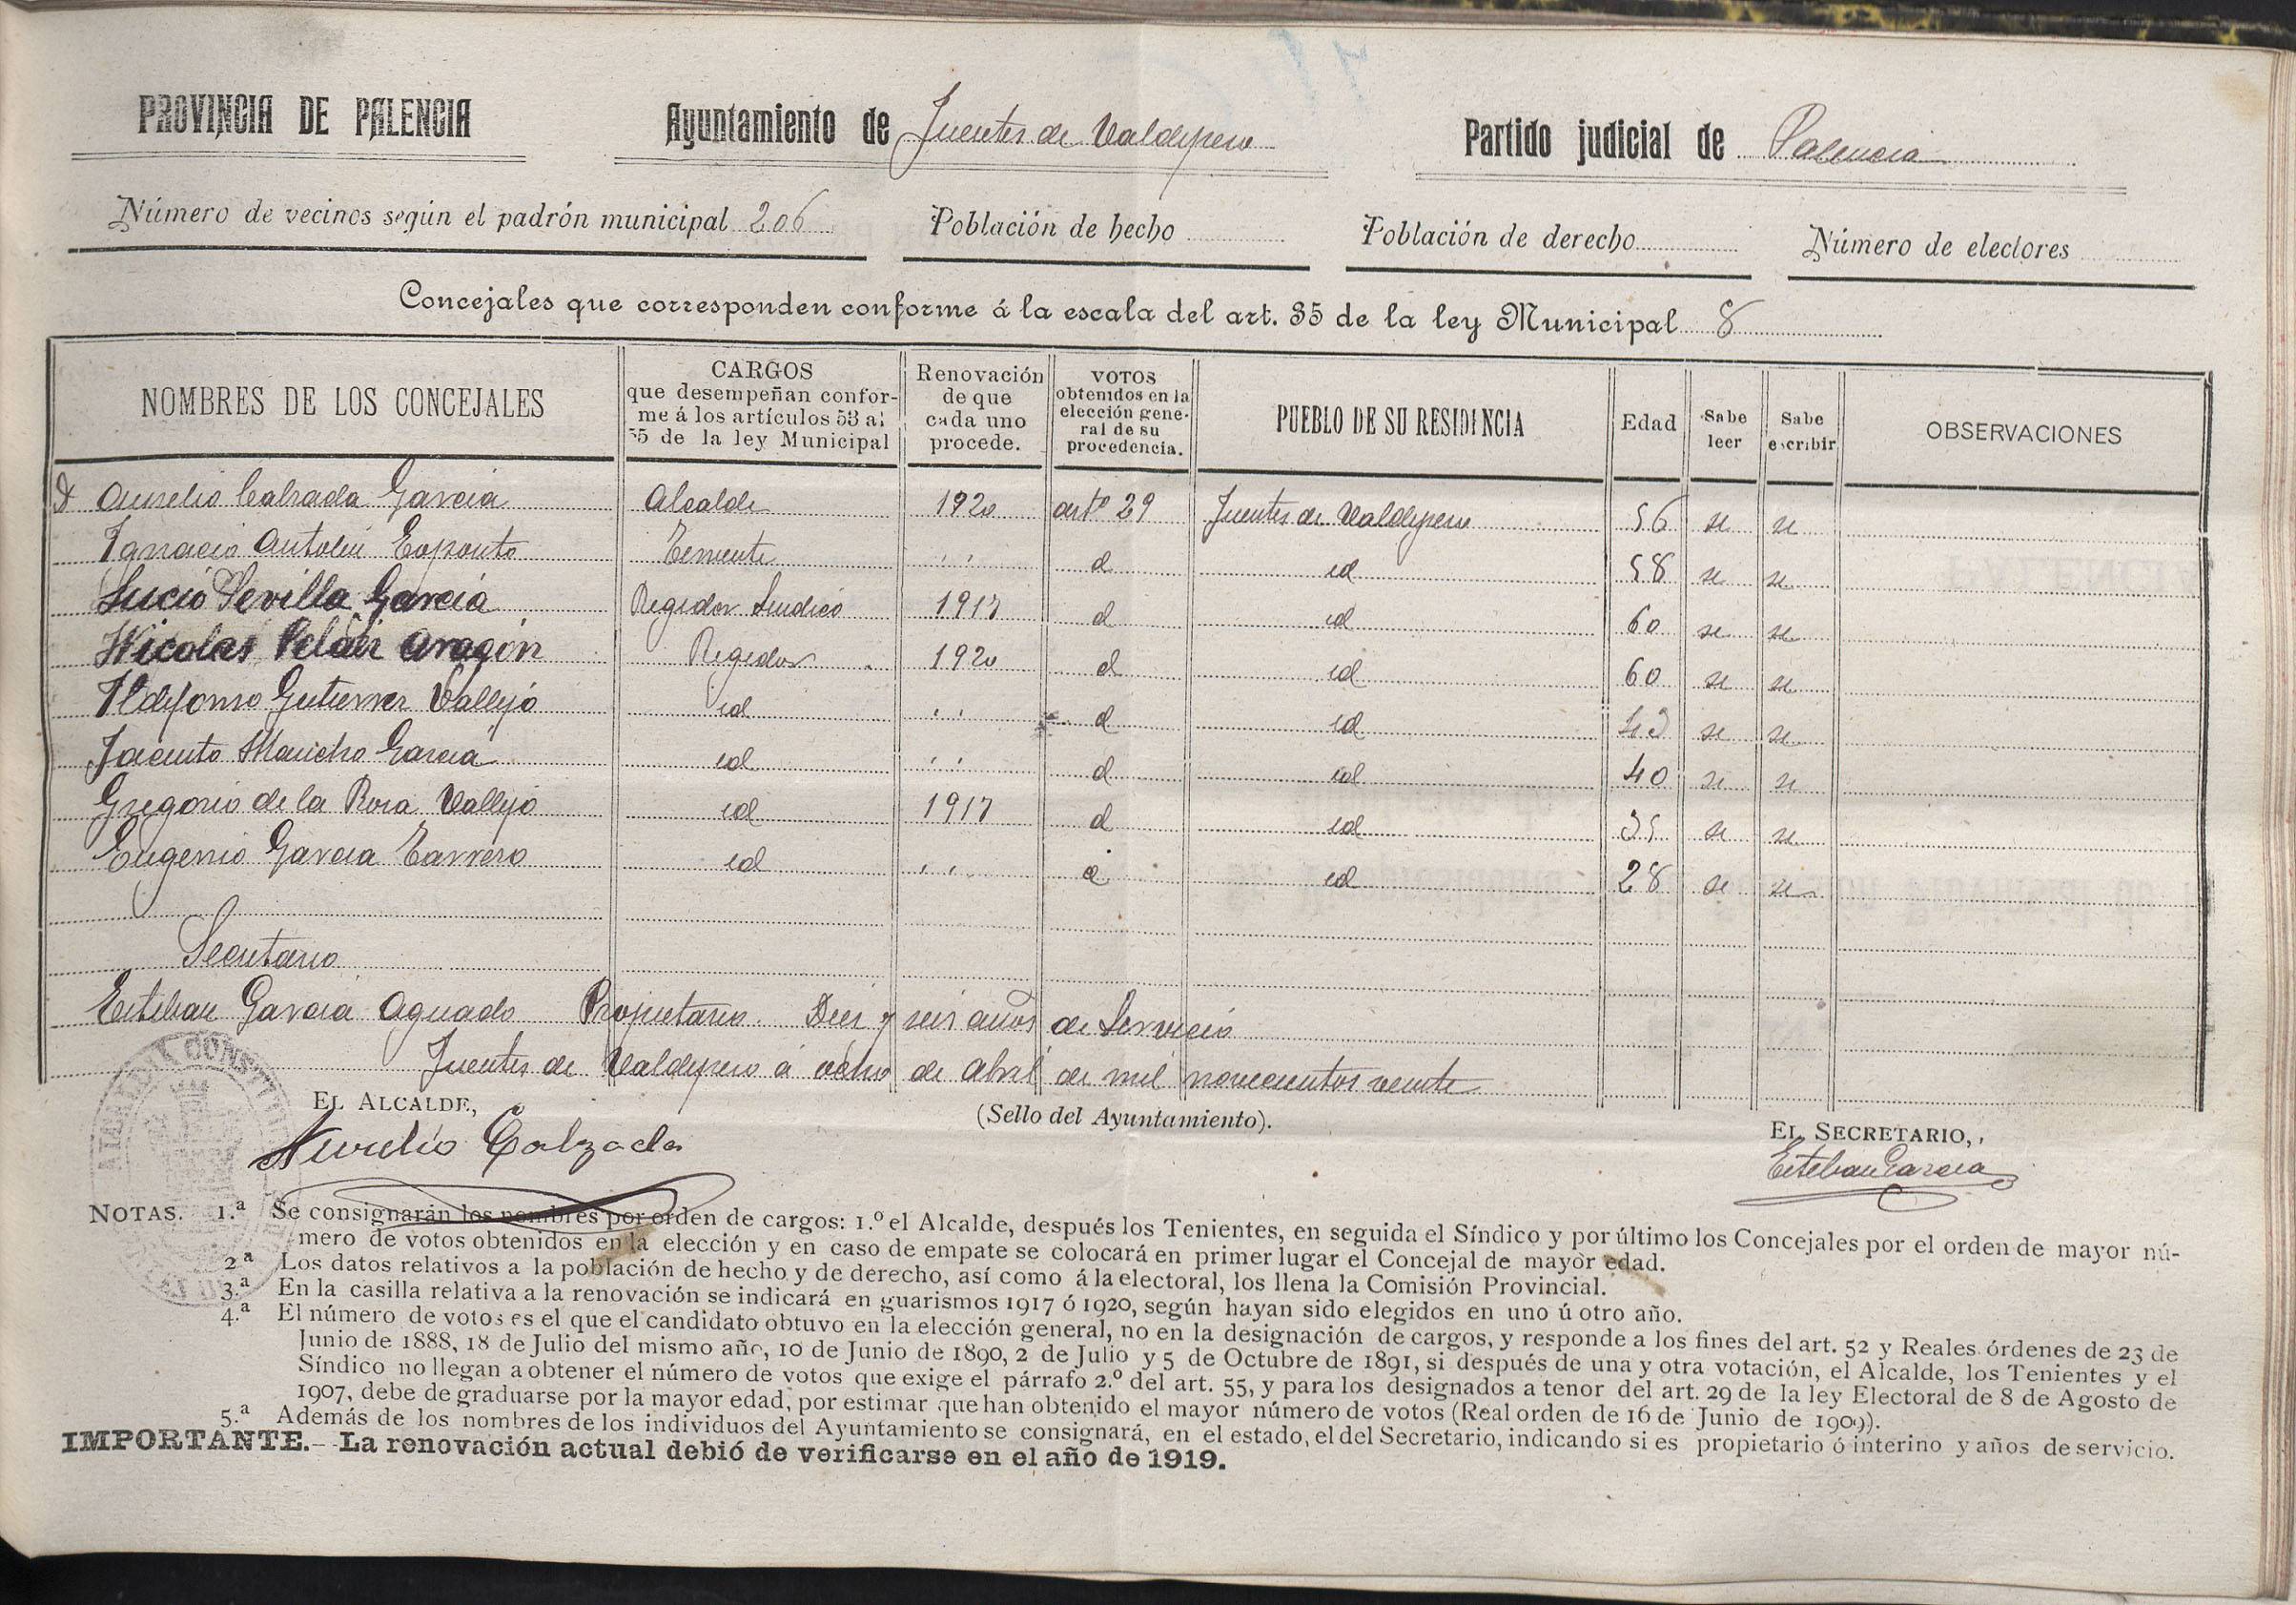 PROVINCIA DE PALENCIA Ayuntamiento de Fuentes de Valdepero Partido judicial de Palencia
Número de vecinos según el padrón municipal 206 Población de hecho Población de derecho Número de electores
Concejales que corresponden conforme á la escala del art. 35 de la ley Municipal 8
NOMBRES DE LOS CONCEJALES CARGOS que desempeñan conforme á los artículos 53 al 55 de la ley Municipal Renovación de que cada uno procede. VOTOS obtenidos en la elección general de su procedencia. PUEBLO DE SU RESIDENCIA Edad Sabe leer Sabe escribir OBSERVACIONES
D Aurelio Calzada García Alcalde 1920 artº 29 Fuentes de Valdepero 56 si si
Ignacio Antolín Exposito Teniente " " id id 58 si si
Lucio Sevilla García Regidor Sindico 1917 id id 60 si si
Nicolas Pelaez Aragón Regidor 1920 id id 60 si si
Ildefonso Gutierrez Vallejo id " " id id 43 si si
Jacinto Mancho García id " " id id 40 si si
Gregorio de la Rosa Vallejo id 1917 id id 35 si si
Eugenio García Tarrero id " " id id 28 si si
Secretario
Esteban García Aguado Propietario. Diez y seis años de Servicio
Fuentes de Valdepero á ocho de Abril de mil novecientos veinte
EL ALCALDE, (Sello del Ayuntamiento). EL SECRETARIO,
Aurelio Calzada Esteban García
NOTAS. 1.ª Se consignarán los nombres por orden de cargos: 1.º el Alcalde, después los Tenientes, en seguida el Síndico y por último los Concejales por el orden de mayor nú-
mero de votos obtenidos en la elección y en caso de empate se colocará en primer lugar el Concejal de mayor edad.
2.ª Los datos relativos a la población de hecho y de derecho, así como á la electoral, los llena la Comisión Provincial.
3.ª En la casilla relativa a la renovación se indicará en guarismos 1917 ó 1920, según hayan sido elegidos en uno ú otro año.
4.ª El número de votos es el que el candidato obtuvo en la elección general, no en la designación de cargos, y responde a los fines del art. 52 y Reales órdenes de 23 de
Junio de 1888, 18 de Julio del mismo año, 10 de Junio de 1890, 2 de Julio y 5 de Octubre de 1891, si después de una y otra votación, el Alcalde, los Tenientes y el
Síndico no llegan a obtener el número de votos que exige el párrafo 2.º del art. 55, y para los designados a tenor del art. 29 de la ley Electoral de 8 de Agosto de
1907, debe de graduarse por la mayor edad, por estimar que han obtenido el mayor número de votos (Real orden de 16 de Junio de 1909).
5.ª Además de los nombres de los individuos del Ayuntamiento se consignará, en el estado, el del Secretario, indicando si es propietario ó interino y años de servicio.
IMPORTANTE.—La renovación actual debió de verificarse en el año de 1919.